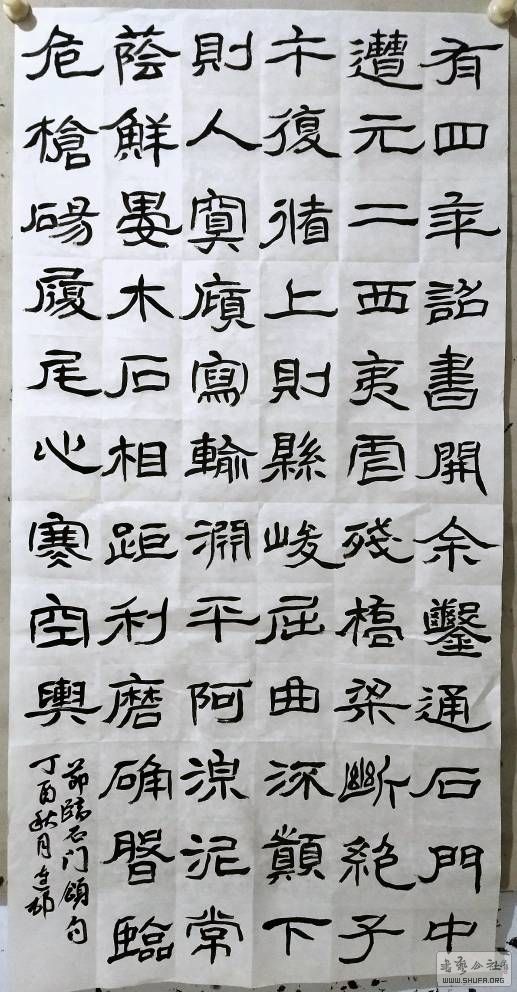 有四年詔書開余鑿通石門中
遭元二西夷虐殘橋梁斷絶子
午復循上則縣峻屈曲流顛下
則入冥廎寫輸淵平阿湶泥常
蔭鮮晏木石相距利磨确磐臨
危槍碭履尾心寒空輿
節臨石门頌句
丁酉秋月
书艺公社
WWW.SHUFA.ORG